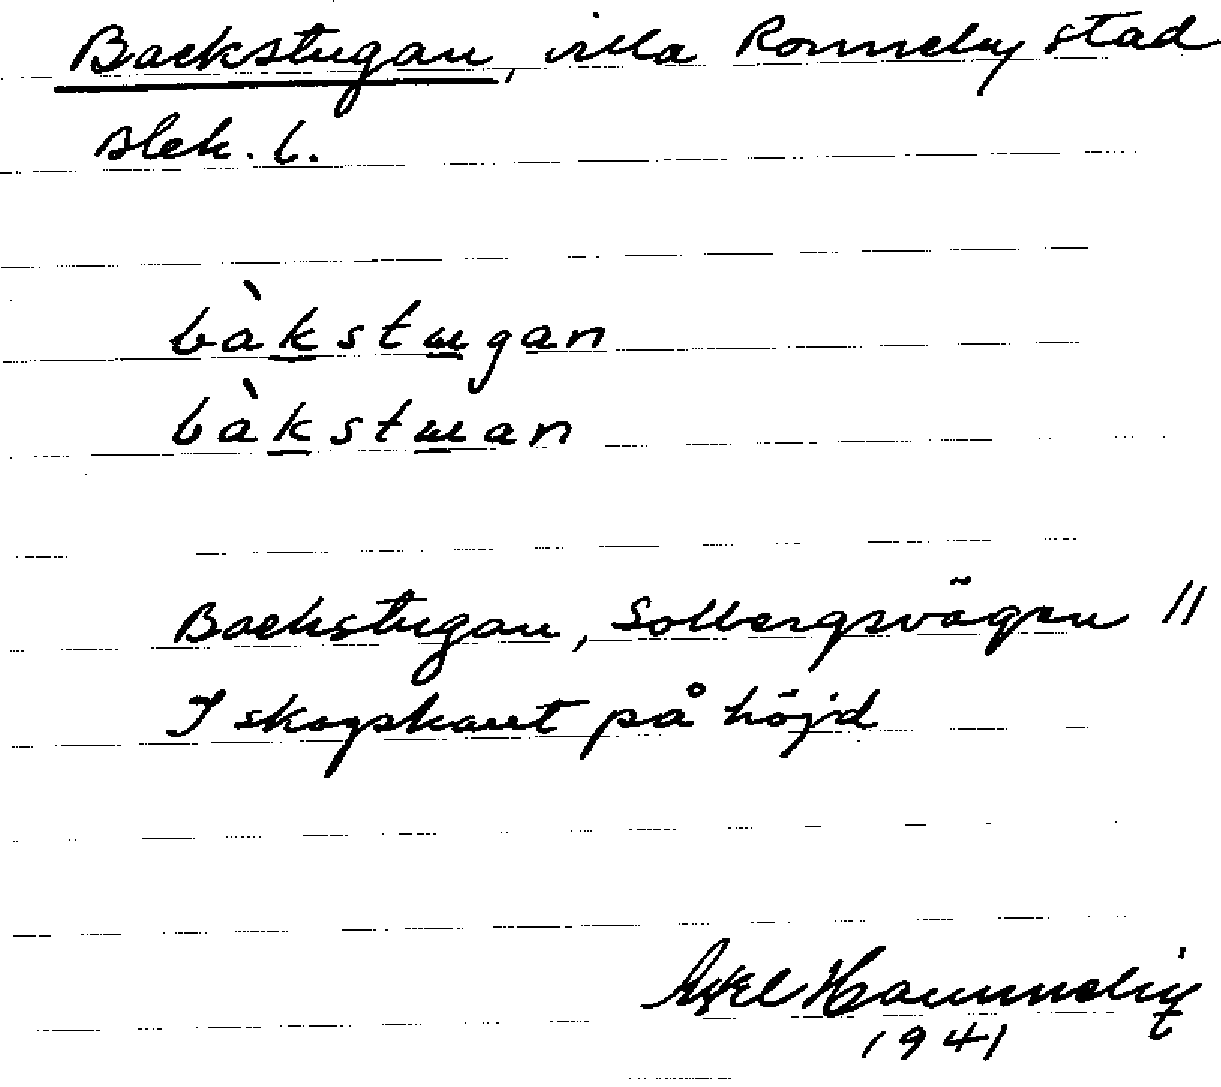 Backstugan, villa Ronneby stad
Blek. l.
bàkstugan
bàkstuan
Backstugan, Solbergsvägen 11
I skogskant på höjd
Axel
1941